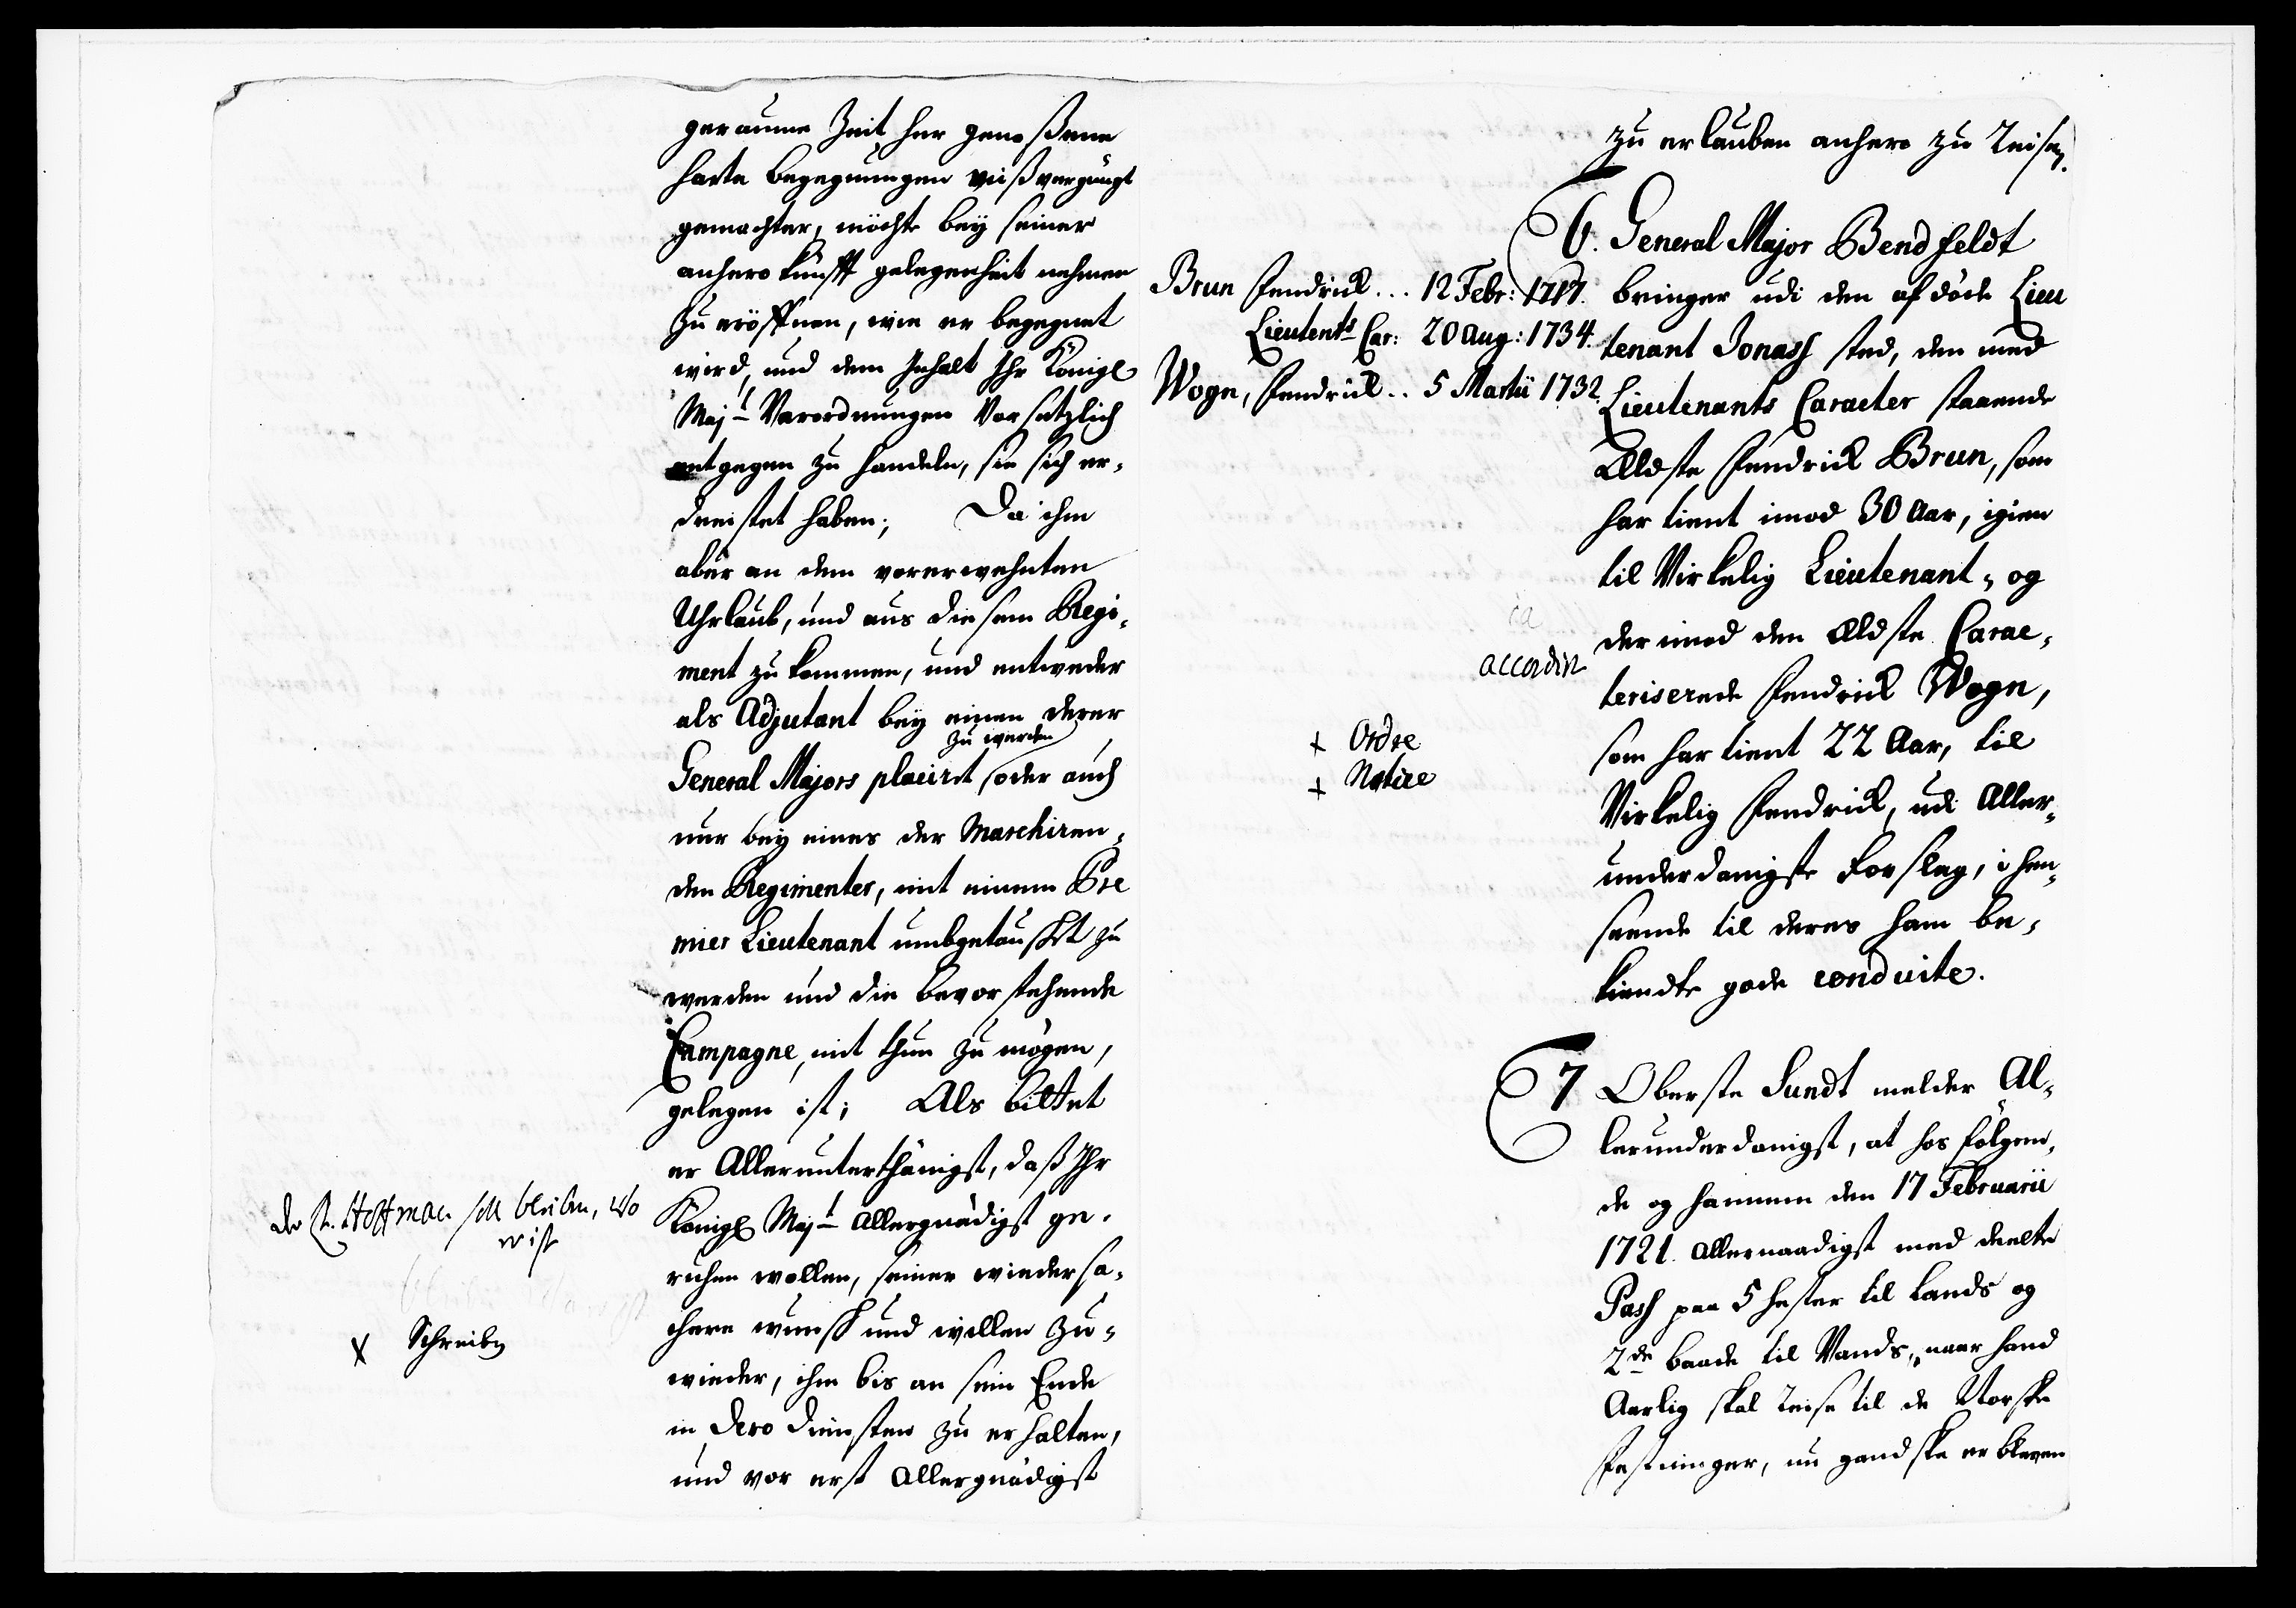 geraume Zeit her genoßene
harte begegnungen mißvergnügt
gemachter, möchte bey seiner
anherokunfft gelegenheit nehmen
zu eröffnen, wie er begegnet
wird, und dem Inhalt Ihr Königl
Majt Verordnungen Vorsatzlich
entgegen zu handeln, sie sich er-
dreistet haben; Da ihm
aber an dem vorerwehnten
Uhrlaub, und aus diesem Regi-
ment zu kommen, und entweder
als Adjutant bey einen derer
General Majors placirt zu werden oder auch
nur bey eines der Marchiren-
den Regimenter, mit einem Pre
mier Lieutenant umbgetauscht zu
werden und die bevorstehende
Campagne, mit thun zu mögen,
gelegen ist; Als bittet
er Allerunterthänigst, daß Ihr
Königl Majt Allergnädigst ge-
ruhen wollen, seiner wiedersa-
chere wunsch und willen zu-
wieder, ihm bis an sein Ende
in Dero Diensten zu erhalten,
und vor erst Allergnädigst
der L. Hoffman soll bleiben, wo
er ist
x Schreiben
zu erlauben anhero zu Reisen.
6. General Major Bendfeldt
bringer udi den afdöde Lieu
tenant Jonass sted, den med
Lieutenants Caracter staaende
Ældste Fendrick Brun, som
har tient imod 30 Aar, igien
til Virkelig Lieutenant, og
derimod den Ældste Carac-
teriserede Fendrick Wogn,
som har tient 22 Aar, til
Virkelig Fendrick, udi Aller-
underdanigste Forslag, i hen-
seende til deres ham be-
kiendte gode conduite.
Brun Fendrick... 12 Febr: 1717.
Lieutents Car: 20 Aug: 1734.
Wogn, Fendrick.. 5 Martii 1732.
accordirt
+ Ordre
+ Notice
7 Oberste Sundt melder Al-
lerunderdanigst, at hos fölgen-
de og hannem den 17 Februarii
1721. Allernaadigst med deelte
Pass paa 5 hester til Lands og
2de baade til Vands, naar hand
Aarlig skal Reise til de Norske
Festninger, nu gandske er bleven